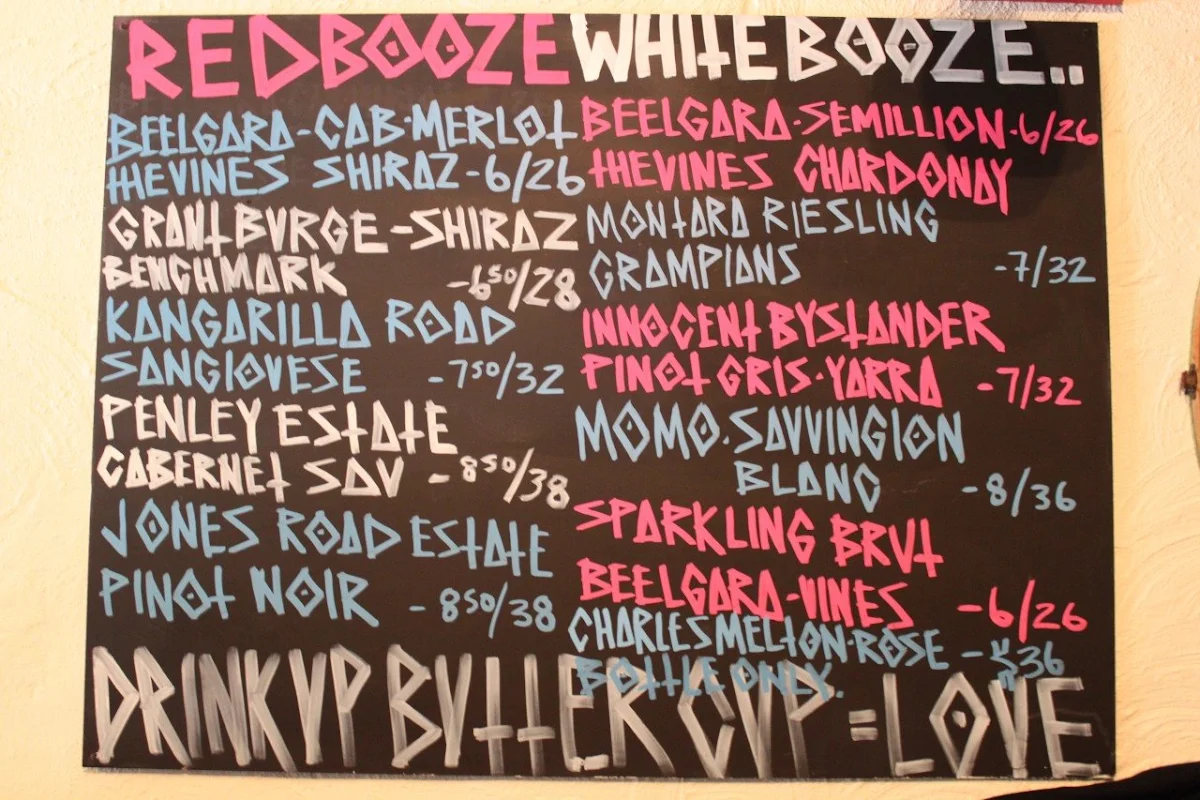 RED BOOZE
BEELGARA-CAB·MERLOT
THEVINES SHIRAZ-6/26
GRANT BURGE-SHIRAZ
BENCHMARK -6⁵⁰/28
KANGARILLA ROAD
SANGIOVESE -7⁵⁰/32
PENLEY ESTATE
CABERNET SAV -8⁵⁰/38
JONES ROAD ESTATE
PINOT NOIR -8⁵⁰/38
WHITE BOOZE..
BEELGARA·SEMILLION·6/26
THEVINES CHARDONAY
MONTARA RIESLING
GRAMPIANS -7/32
INNOCENT BYSTANDER
PINOT GRIS·YARRA -7/32
MOMO·SAVVINGION
BLANG -8/36
SPARKLING BRUT
BEELGARA-VINES -6/26
CHARLES MELTON·ROSE - 36
BOTTLE ONLY.
DRINK UP BUTTER CUP = LOVE